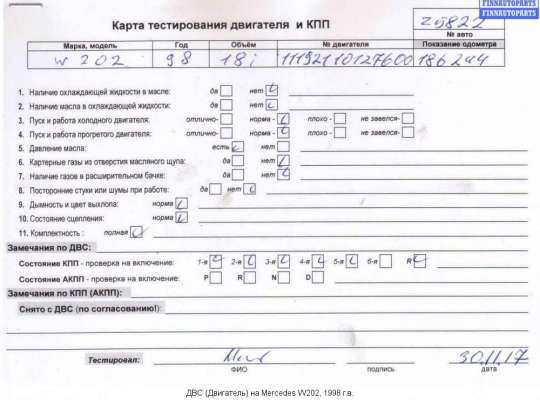 FINNAUTOPARTS
FINNAUTOPARTS
Карта тестирования двигателя и КПП
25822
№ авто
Марка, модель Год Объём № двигателя Показание одометра
W 202 98 18i 11192110127600 186244
1. Наличие охлаждающей жидкости в масле: да нет
2. Наличие масла в охлаждающей жидкости: да нет
3. Пуск и работа холодного двигателя: отлично- норма - плохо - не завелся-
4. Пуск и работа прогретого двигателя: отлично- норма - плохо - не завелся-
5. Давление масла: есть нет
6. Картерные газы из отверстия масляного щупа: да нет
7. Наличие газов в расширительном бачке: да нет
8. Посторонние стуки или шумы при работе: да нет
9. Дымность и цвет выхлопа: норма
10. Состояние сцепления: норма
11. Комплектность : полная
Замечания по ДВС:
Состояние КПП - проверка на включение: 1-я 2-я 3-я 4-я 5-я 6-я R
Состояние АКПП - проверка на включение: P R N D
Замечания по КПП (АКПП):
Снято с ДВС (по согласованию!):
Тестировал: 30.11.17
ФИО подпись дата
ДВС (Двигатель) на Mercedes W202, 1998 г.в.